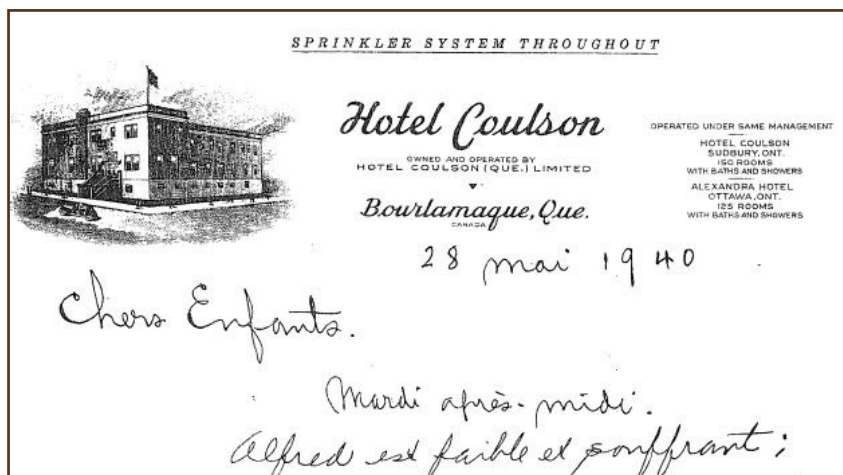 SPRINKLER SYSTEM THROUGHOUT
Hotel Coulson
OWNED AND OPERATED BY
HOTEL COULSON (QUE.) LIMITED
Bourlamaque, Que.
CANADA
OPERATED UNDER SAME MANAGEMENT
HOTEL COULSON
SUDBURY, ONT.
150 ROOMS
WITH BATHS AND SHOWERS
ALEXANDRA HOTEL
OTTAWA, ONT.
125 ROOMS
WITH BATHS AND SHOWERS
28 mai 1940
Chers Enfants.
Mardi après-midi.
Alfred est faible et souffrant;